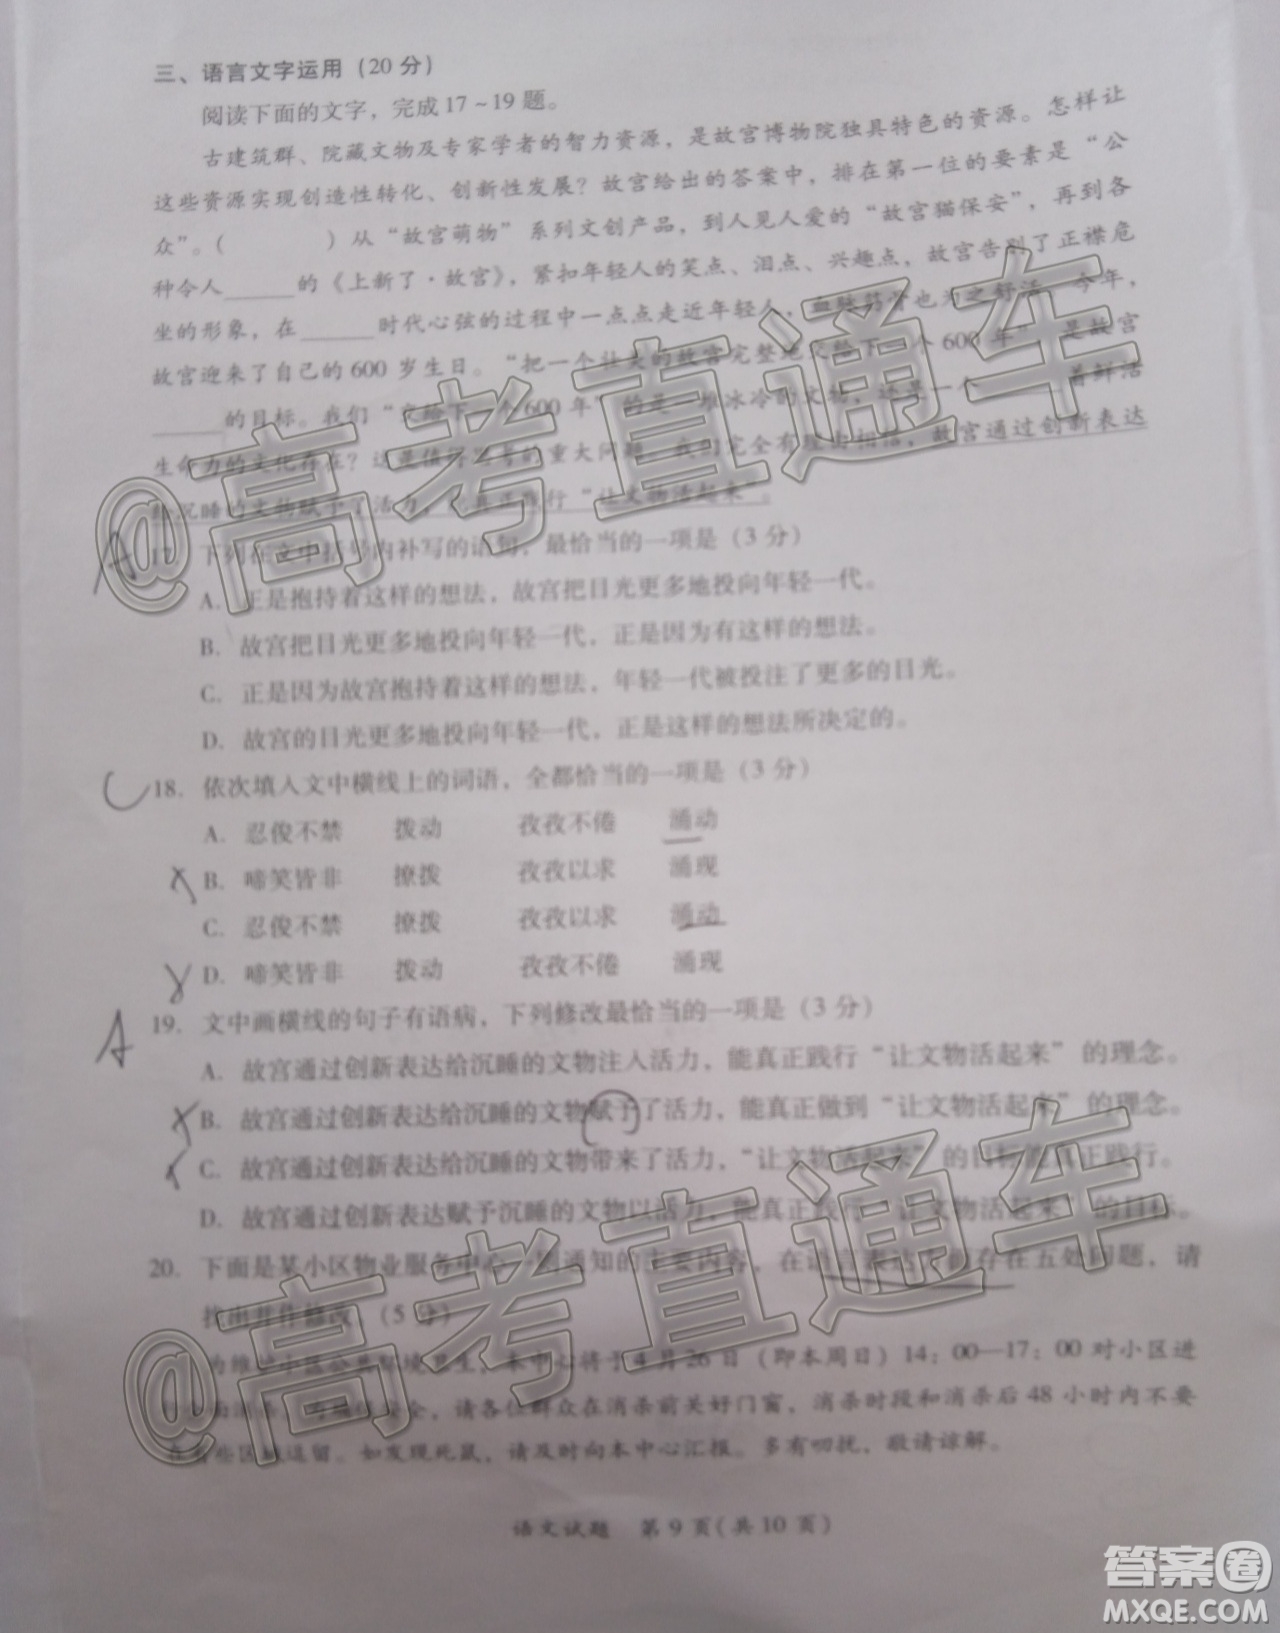 三、语言文字运用（20分）
阅读下面的文字，完成17～19题。
古建筑群、院藏文物及专家学者的智力资源，是故宫博物院独具特色的资源。怎样让
这些资源实现创造性转化、创新性发展？故宫给出的答案中，排在第一位的要素是“公
众”。（ ）从“故宫萌物”系列文创产品，到人见人爱的“故宫猫保安”，再到各
种令人______的《上新了·故宫》，紧扣年轻人的笑点、泪点、兴趣点，故宫告别了正襟危
坐的形象，在______时代心弦的过程中一点点走近年轻人，血脉筋骨也为之舒活。今年，
故宫迎来了自己的600岁生日。“把一个壮美的故宫完整地交给下一个600年”是故宫
______的目标。我们“交给下一个600年”的是一堆冰冷的文物，还是一个______着鲜活
生命力的文化存在？这是值得思考的重大问题。我们完全有理由相信，故宫通过创新表达
给沉睡的文物赋予了活力，能真正践行“让文物活起来”。
A
17. 下列在文中括号内补写的语句，最恰当的一项是（3分）
A. 正是抱持着这样的想法，故宫把目光更多地投向年轻一代。
B. 故宫把目光更多地投向年轻一代，正是因为有这样的想法。
C. 正是因为故宫抱持着这样的想法，年轻一代被投注了更多的目光。
D. 故宫的目光更多地投向年轻一代，正是这样的想法所决定的。
C
18. 依次填入文中横线上的词语，全都恰当的一项是（3分）
A. 忍俊不禁 拨动 孜孜不倦 涌动
B. 啼笑皆非 撩拨 孜孜以求 涌现
C. 忍俊不禁 撩拨 孜孜以求 涌动
D. 啼笑皆非 拨动 孜孜不倦 涌现
A
19. 文中画横线的句子有语病，下列修改最恰当的一项是（3分）
A. 故宫通过创新表达给沉睡的文物注入活力，能真正践行“让文物活起来”的理念。
B. 故宫通过创新表达给沉睡的文物赋予了活力，能真正做到“让文物活起来”的理念。
C. 故宫通过创新表达给沉睡的文物带来了活力，“让文物活起来”的目标能真正践行。
D. 故宫通过创新表达赋予沉睡的文物以活力，能真正践行“让文物活起来”的目标。
20. 下面是某小区物业服务中心一则通知的主要内容，在语言表达方面存在五处问题，请
找出并作修改。（5分）
为维护小区公共环境卫生，本中心将于4月26日（即本周日）14：00—17：00对小区进
请各位群众在消杀前关好门窗，消杀时段和消杀后48小时内不要
在有些区域逗留。如发现死鼠，请及时向本中心汇报。多有叨扰，敬请谅解。
语文试题 第9页（共10页）
@高考直通车
@高考直通车
答案圈
MXQE.COM